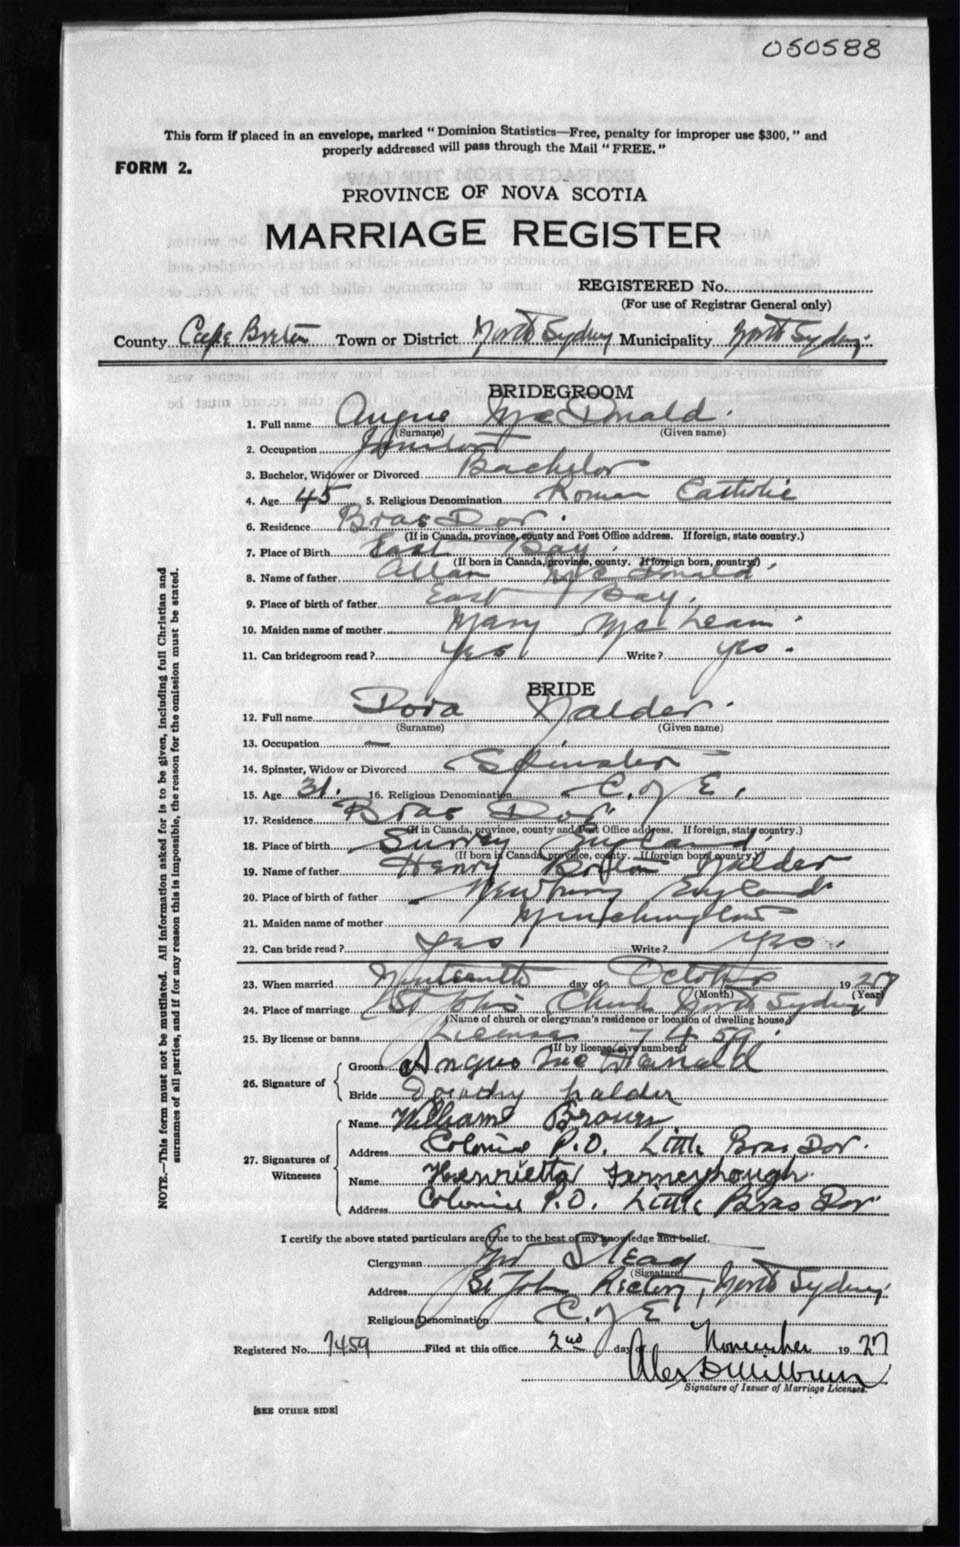 050588
This form if placed in an envelope, marked "Dominion Statistics—Free, penalty for improper use $300," and
properly addressed will pass through the Mail "FREE."
FORM 2.
PROVINCE OF NOVA SCOTIA
MARRIAGE REGISTER
REGISTERED No.
(For use of Registrar General only)
County Cape Breton Town or District North Sydney Municipality North Sydney.
BRIDEGROOM
1. Full name Angus MacDonald.
(Surname) (Given name)
2. Occupation Janitor
3. Bachelor, Widower or Divorced Bachelor
4. Age 45 5. Religious Denomination Roman Catholic
6. Residence Bras Dor.
(If in Canada, province, county and Post Office address. If foreign, state country.)
7. Place of Birth East Bay.
(If born in Canada, province, county. If foreign born, country)
8. Name of father Allan McDonald.
9. Place of birth of father East Bay.
10. Maiden name of mother Mary McLean.
11. Can bridegroom read? Yes Write? yes.
BRIDE
12. Full name Dora Nalder.
(Surname) (Given name)
13. Occupation —
14. Spinster, Widow or Divorced Spinster
15. Age 31. 16. Religious Denomination C. of E.
17. Residence Bras Dor
(If in Canada, province, county and Post Office address. If foreign, state country.)
18. Place of birth Surrey England.
(If born in Canada, province, county. If foreign born, country)
19. Name of father Henry Nalder
20. Place of birth of father Newbury England
21. Maiden name of mother
22. Can bride read? Yes Write? Yes.
23. When married Nineteenth day of October 1927
(Month) (Year)
24. Place of marriage St John's Church North Sydney
(Name of church or clergyman's residence or location of dwelling house)
25. By license or banns License 7459.
(If by license give number)
26. Signature of
Groom Angus MacDonald
Bride Dorothy Nalder
27. Signatures of Witnesses
Name William Brown
Address Colonia P.O. Little Bras Dor.
Name Henrietta Farneyhough
Address Colonia P.O. Little Bras Dor
I certify the above stated particulars are true to the best of my knowledge and belief.
Clergyman Stead
(Signature)
Address St John Rectory, North Sydney
Religious Denomination C. of E
Registered No. 7459 Filed at this office 2nd day November 1927
Alex
Signature of Issuer of Marriage Licenses.
[SEE OTHER SIDE]
NOTE.—This form must not be mutilated. All information asked for is to be given, including full Christian and
surnames of all parties, and if for any reason this is impossible, the reason for the omission must be stated.